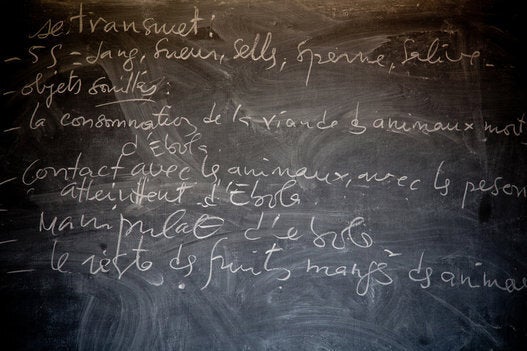 se transmet:
- 5S = Sang, Sueur, Sells, Sperme, Salive -
- objets souillés:
- la consommation de la viande d animaux morts
d'Ebola
- Contact avec les animaux, avec les peson
atteintent d'Ebola
Manipulat d'ebola
- le reste ds fruits mangé ds anima